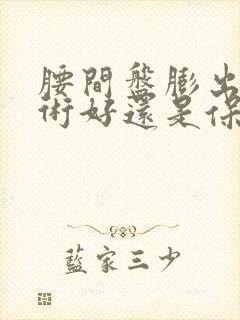 腰間盤膨出
術好還是保
藍家三少